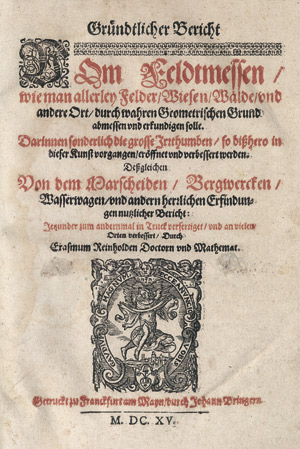 Gründtlicher Bericht
VOm Feldtmessen /
wie man allerley Felder / Wiesen / Wälde / vnd
andere Ort / durch wahren Geometrischen Grund
abmessen vnd erkundigen solle.
Darinnen sonderlich die grosse Irrthumben / so bißhero in
dieser Kunst vorgangen / eröffnet vnd verbessert werden.
Deßgleichen
Von dem Marscheiden / Bergwercken /
Wasserwagen / vnd andern herrlichen Erfindun-
gen nutzlicher Bericht:
Jetzunder zum andernmal in Truck verfertiget / vnd an vielen
Orten verbessert / Durch
Erasmum Reinholden Doctorn vnd Mathemat.
Getruckt zu Franckfurt am Mayn / durch Johann Bringern.
M. DC. XV.